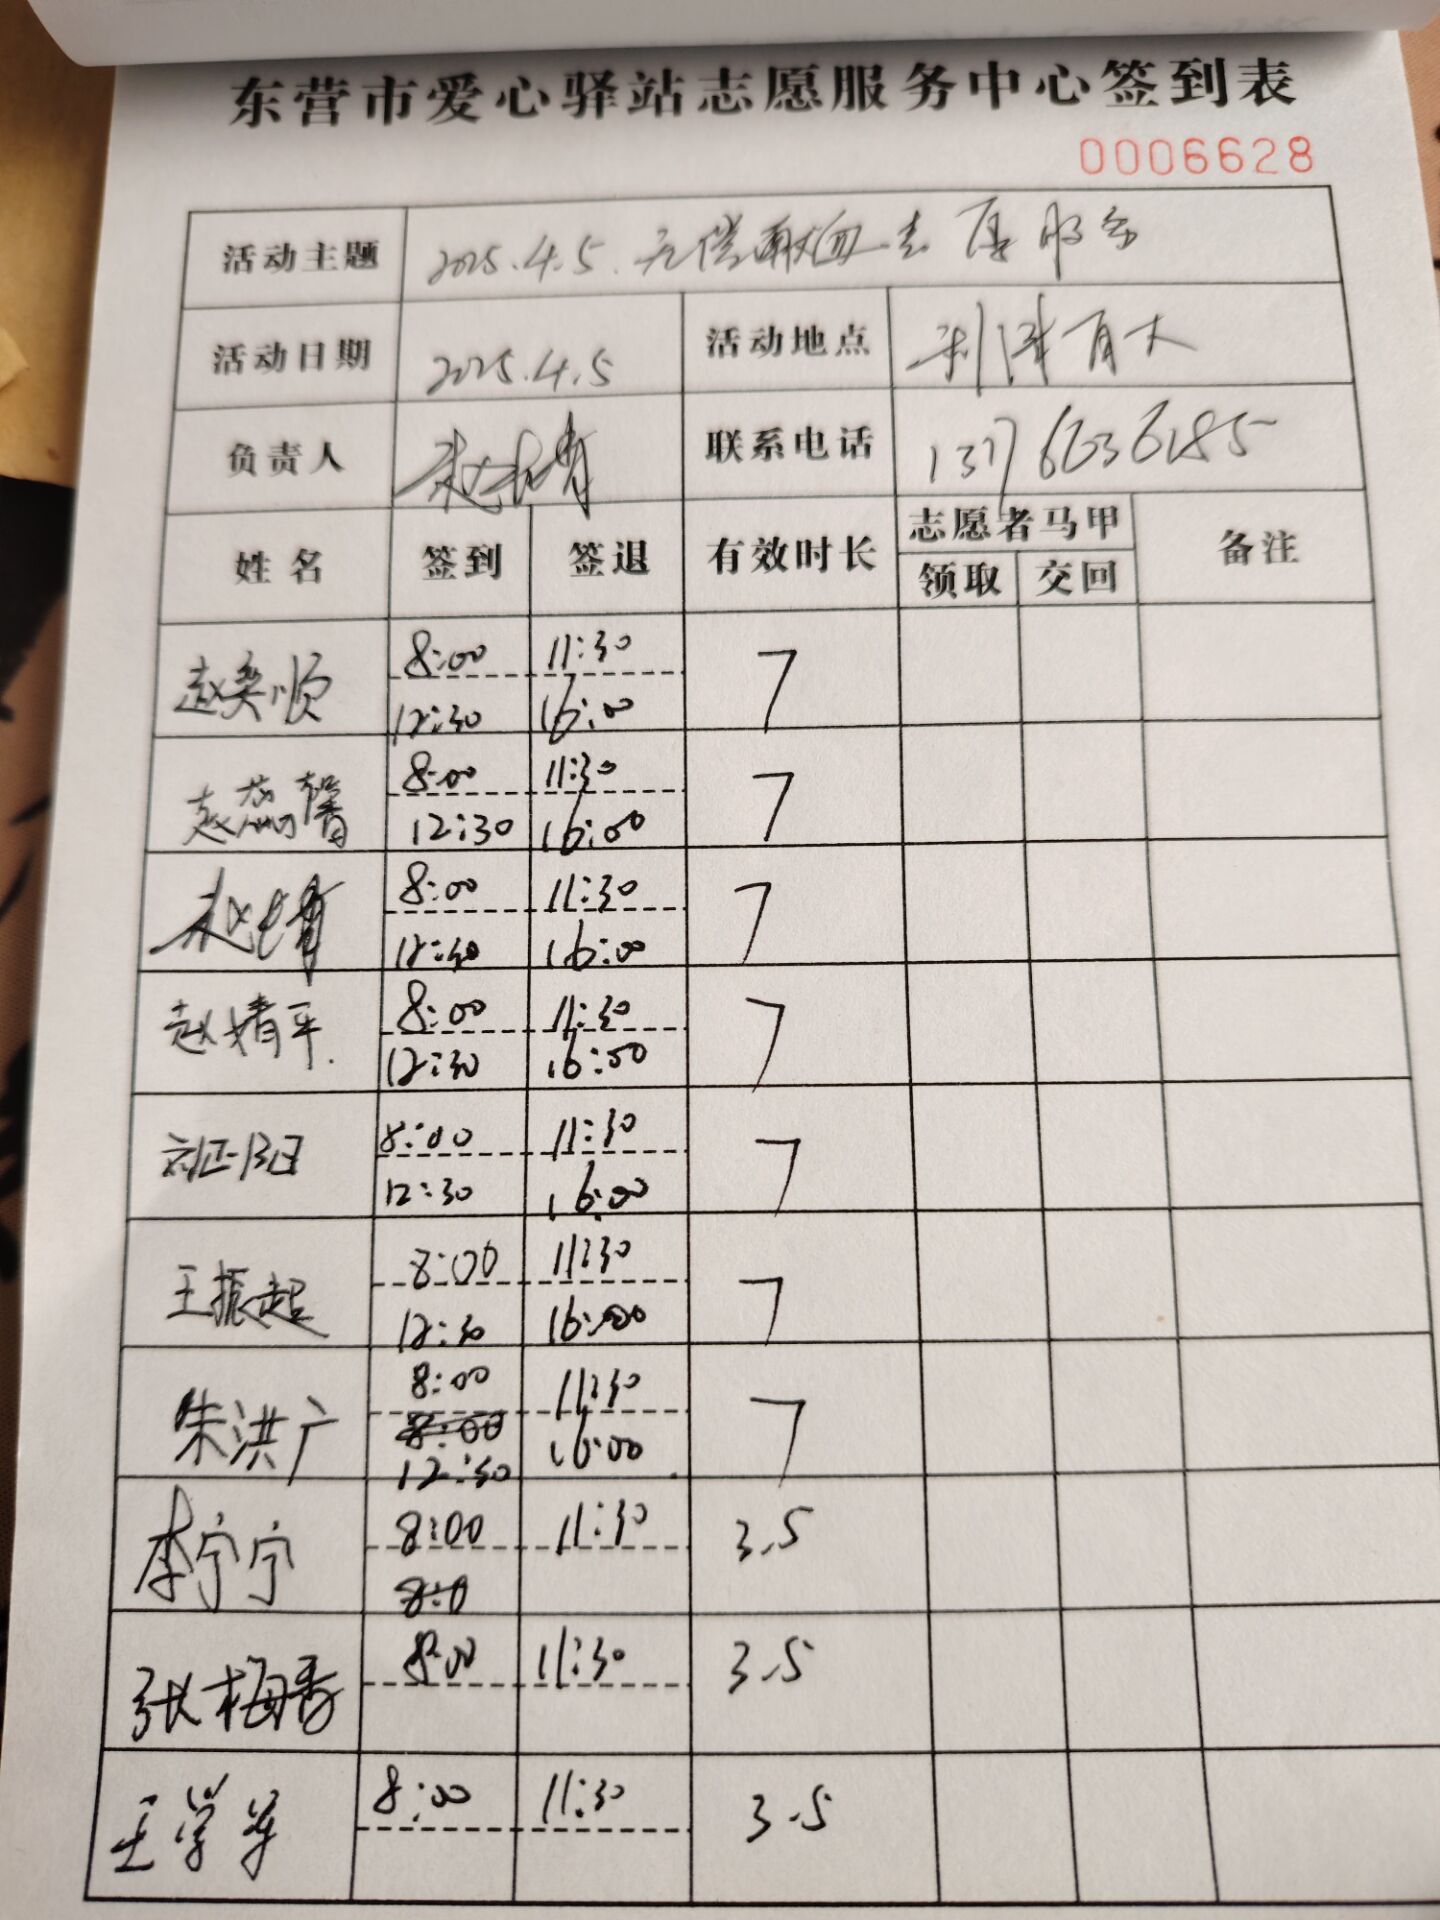 东营市爱心驿站志愿服务中心签到表
0006628
活动主题 2025.4.5.无偿献血志愿服务
活动日期 2025.4.5 活动地点 利津百大
负责人 联系电话
姓名 签到 签退 有效时长 志愿者马甲 备注
领取 交回
赵奕顺 8:00 11:30 7
12:30 16:00
赵蕊馨 8:00 11:30 7
12:30 16:00
8:00 11:30 7
12:30 16:00
赵婧平. 8:00 11:30 7
12:30 16:00
8:00 11:30 7
12:30 16:00
王振起 8:00 11:30 7
12:30 16:00
朱洪广 8:00 11:30 7
8:00
12:30 16:00
李宁宁 8:00 11:30 3.5
8:0
张梅香 8:00 11:30 3.5
王学军 8:00 11:30 3.5